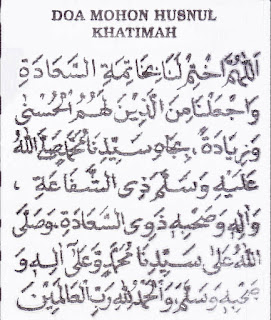 DOA MOHON HUSNUL
KHATIMAH
اَللّٰهُمَّ اخْتِمْ لَنَا بِخَاتِمَةِ السَّعَادَةِ
وَاجْعَلْنَا مِنَ الَّذِيْنَ لَهُمُ الْحُسْنٰى
وَزِيَادَةٌ، بِجَاهِ سَيِّدِنَا مُحَمَّدٍ صَلَّى اللهُ
عَلَيْهِ وَسَلَّمَ ذِى الشَّفَاعَةِ ،
وَاٰلِهِ وَصَحْبِهِ ذَوِى السَّعَادَةِ، وَصَلَّى
اللهُ عَلٰى سَيِّدِنَا مُحَمَّدٍ وَعَلٰى اٰلِهِ وَ
صَحْبِهِ وَسَلَّمَ وَالْحَمْدُ لِلّٰهِ رَبِّ الْعَالَمِيْنَ